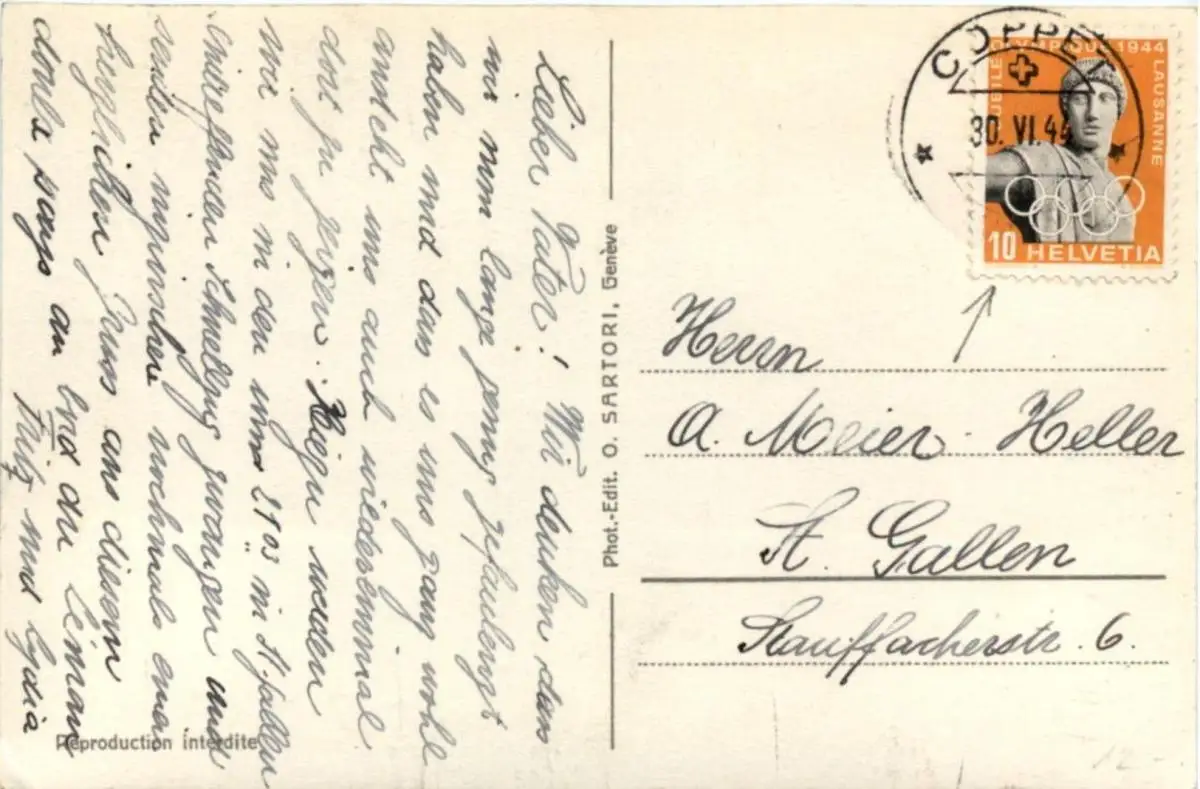 Lieber Vater! Wir denken dass
wir nun lange genug gefaulenzt
haben und dass es uns ganz wohl
ansteht uns auch wiedereinmal
dort zu zeigen. Hiezu werden
wir uns in den um 21 03 in St. Gallen
eintreffenden Schnellzug zwängen und
senden nochmals einen
herzlichen Gruss aus diesem
bad du Léman
Fritz und Lydia
Reproduction interdite
Phot.-Edit. O. SARTORI, Genève
COPPET
30. VI. 44
JUBILÉ OLYMPIQUE 1944
LAUSANNE
10 HELVETIA
Herrn
A. Meier-Heller
St. Gallen
Stauffacherstr. 6.
12.-